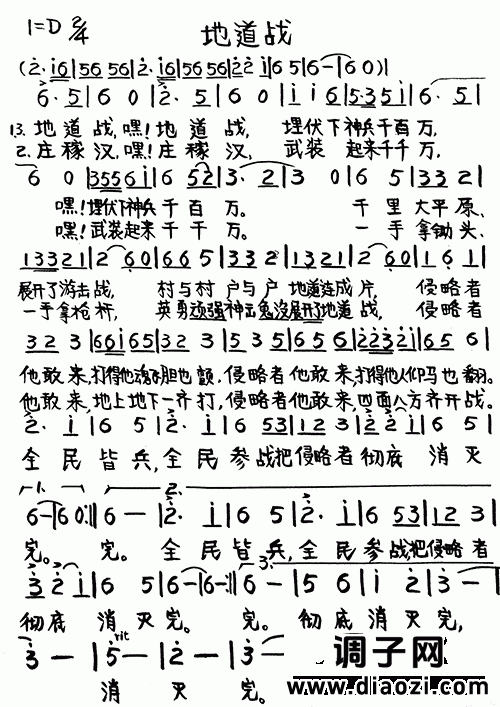 1=D 2/4 地道战
(2·i6|56 56|2·i6|56 56|2 2 i|6 5|6-|6 0)|
6·5|6 0|2·5|6 0|i i 6|5·35 i|6·5|
1.3.地道战,嘿!地道战, 埋伏下神兵千百万,
2.庄稼汉,嘿!庄稼汉, 武装起来千千万,
6 0|3556 i|6 52|3·2|3 0|6 5|332|
嘿!埋伏下神兵千百万。 千里大平原、
嘿!武装起来千千万。 一手拿锄头、
1 3321|2 60|665|332|1321|2 60|1 6 1|
展开了游击战, 村与村户与户地道连成片, 侵略者
一手拿枪杆, 英勇顽强神出鬼没展开了地道战, 侵略者
323|66i65|323|535|656|22321|656|
他敢来,打得他魂飞胆也颤,侵略者他敢来,打得他人仰马也翻。
他敢来,地上地下一齐打,侵略者他敢来,四面八方齐开战。
2·i|6 5|2·i|6 53|123|22i|6 5|
全民皆兵,全民参战,把侵略者彻底消灭
1. 2.
6-|60:|6-|2·i|6 5|2·i|6 53|123|
完。 完。 全民皆兵,全民参战,把侵略者
3.
3 2 i|6 5|6-|6-:|6-|5 6|i 2|3-|
彻底消灭完。 完。彻底消灭完,
rit
3-|5-|2-|3-|
消灭完。
调子网
www.diaozi.com